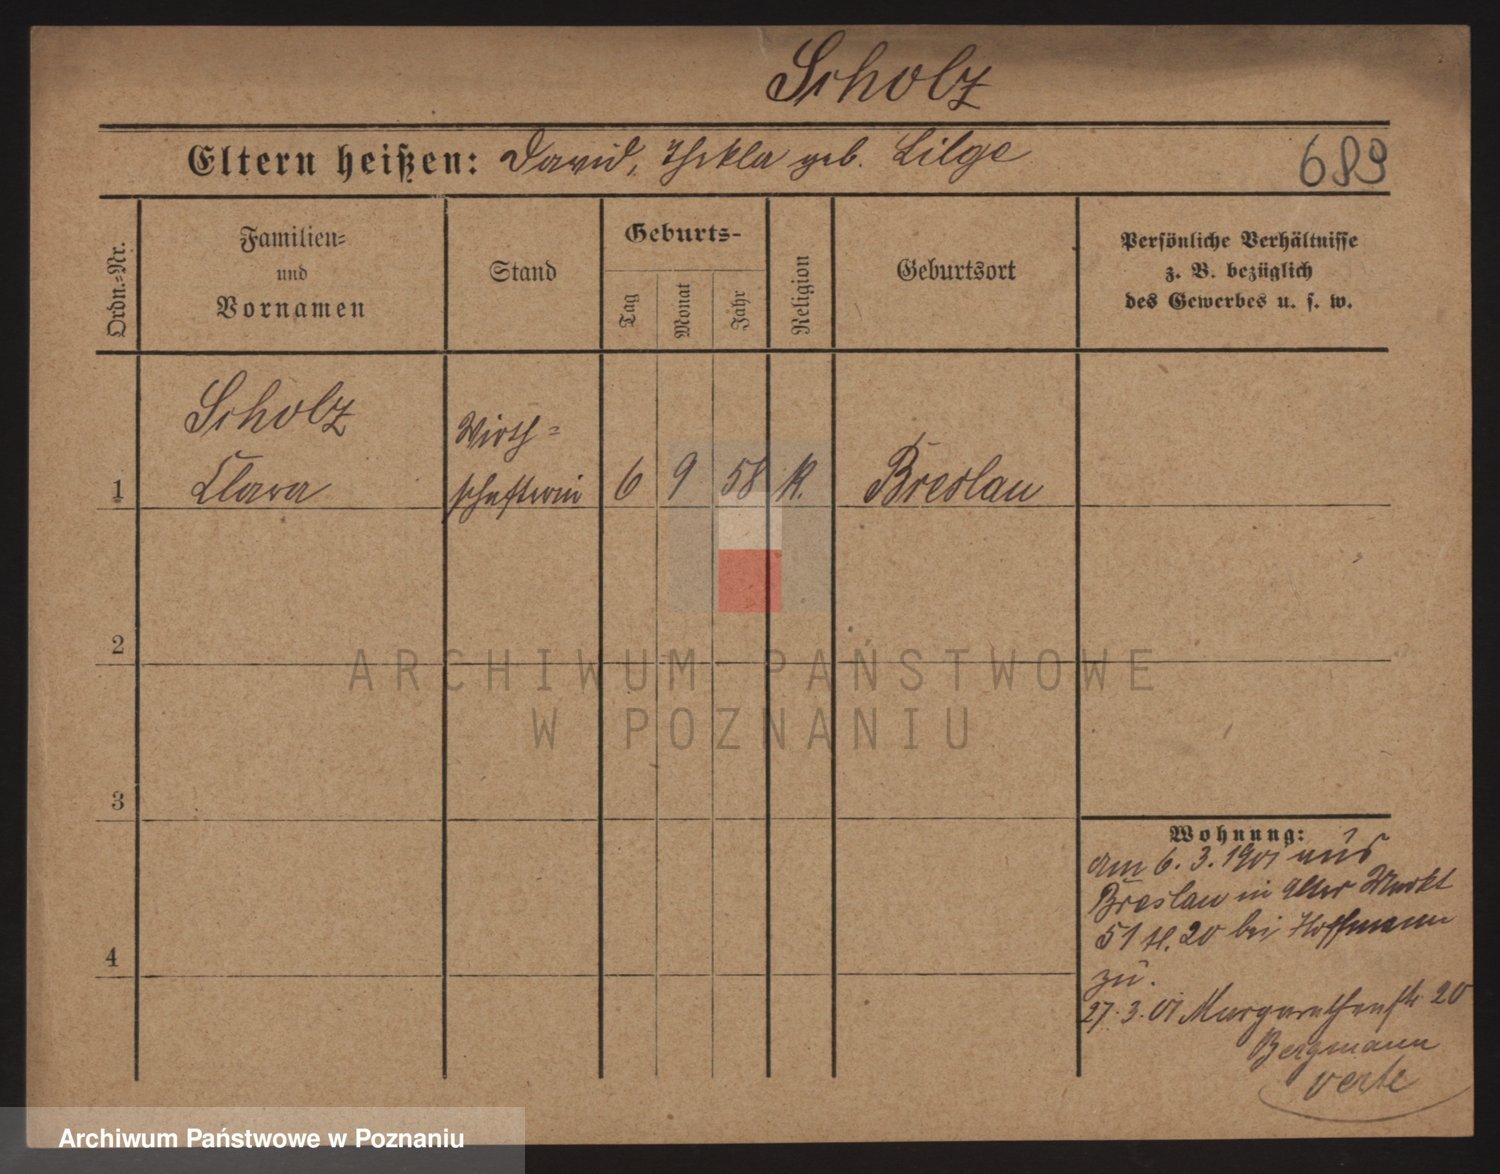 Scholz
Eltern heißen: David, Thekla geb. Lilge
689
Ordn.=Nr.
Familien=
und
Vornamen
Stand
Geburts-
Tag
Monat
Jahr
Religion
Geburtsort
Persönliche Verhältnisse
z. B. bezüglich
des Gewerbes u. s. w.
1
Scholz
Clara
Wirth=
schafterin
6
9
58
k.
Breslau
2
3
4
Wohnung:
am 6. 3. 1901 aus
Breslau in Alter Markt
51 II. 20 bei Hoffmann
zu.
27. 3. 01 Margarethenstr 20
Bergmann
verte
ARCHIWUM PAŃSTWOWE
W POZNANIU
Archiwum Państwowe w Poznaniu